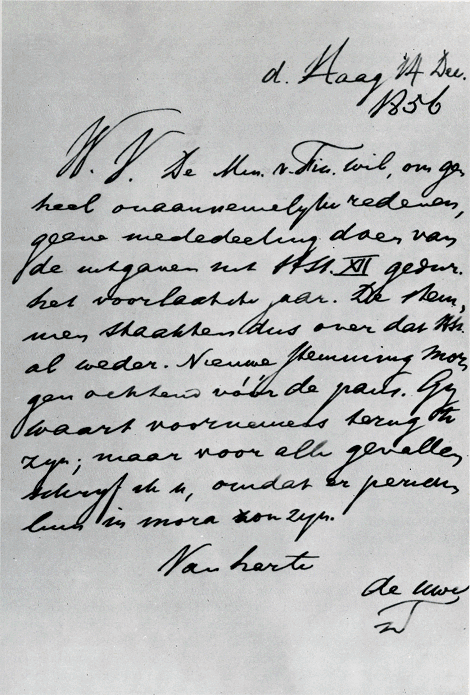 d. Haag 14 Dec.
1856
W. V. De Min. v. Fin. wil, om ge
heel onaannemelyke redenen,
geene mededeeling doen van
de uitgaven uit Hst. XII gedur.
het voorlaatste jaar. De stem,
men staakten dus over dat Hst.
al weder. Nieuwe stemming mor
gen ochtend vóór de paus. Gy
waart voornemens terug te
zyn; maar voor alle gevallen
schryf ik u, omdat er pericu
lum in mora zou zyn.
Van harte
de uwe